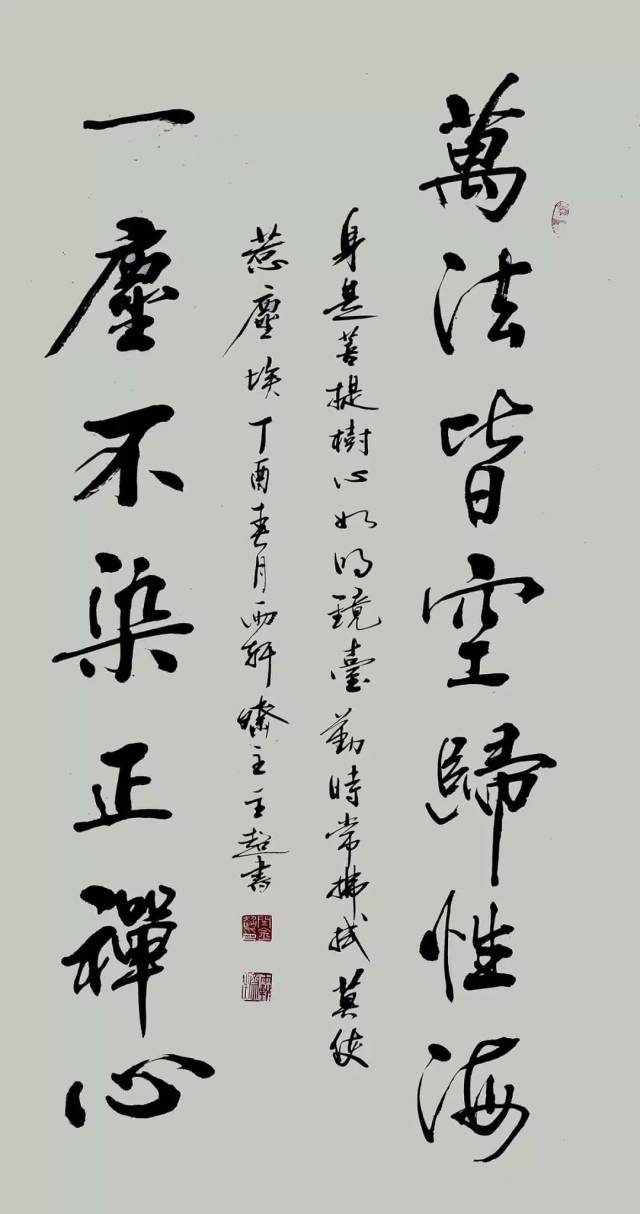 萬法皆空歸性海
身是菩提樹心如明鏡臺勤時常拂拭莫使
惹塵埃丁酉春月西軒
一塵不染正禪心